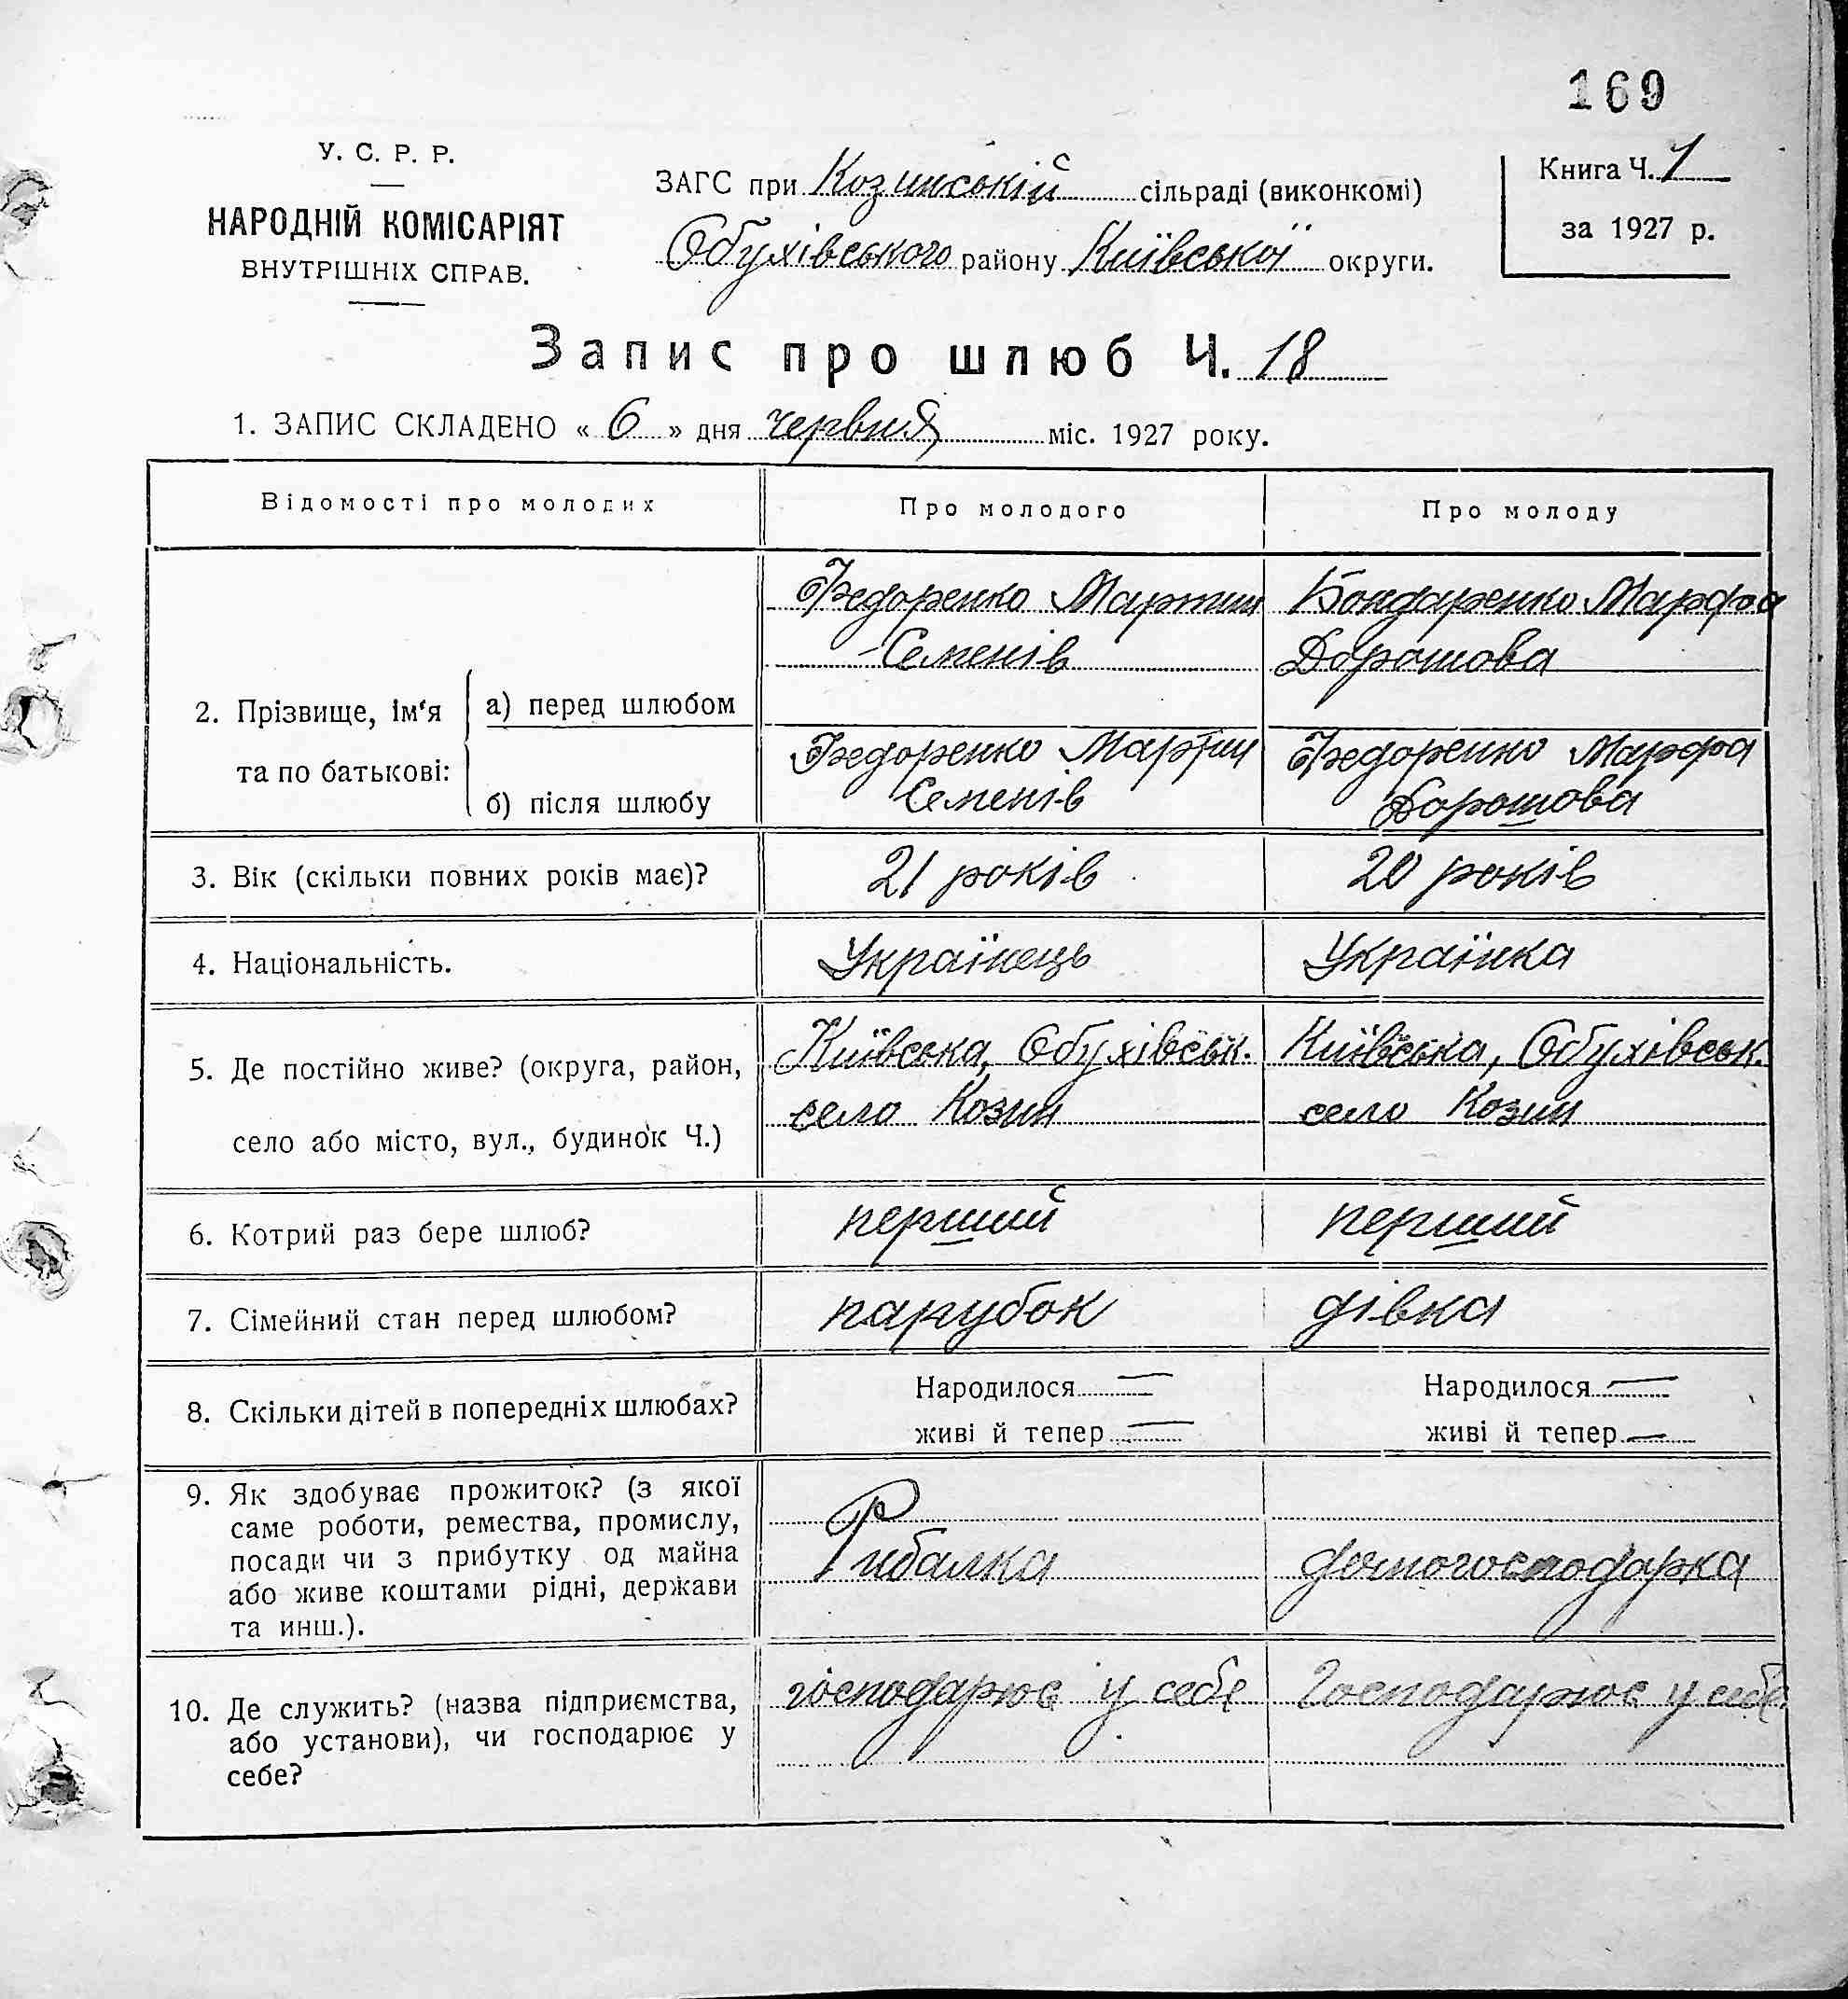 169
У. С. Р. Р.
НАРОДНІЙ КОМІСАРІЯТ
ВНУТРІШНІХ СПРАВ.
ЗАГС при Козинській сільраді (виконкомі)
Обухівського району Київської округи.
Книга Ч. 1
за 1927 р.
Запис про шлюб Ч. 18
1. ЗАПИС СКЛАДЕНО « 6 » дня червня міс. 1927 року.
Відомості про молодих
Про молодого
Про молоду
2. Прізвище, ім'я
та по батькові:
а) перед шлюбом
Федоренко Мартин
Семенів
Бондаренко Марфа
Дорошова
б) після шлюбу
Федоренко Мартин
Семенів
Федоренко Марфа
Дорошова
3. Вік (скільки повних років має)?
21 років
20 років
4. Національність.
Українець
Українка
5. Де постійно живе? (округа, район,
село або місто, вул., будинок Ч.)
Київська, Обухівськ.
село Козин
Київська, Обухівськ.
село Козин
6. Котрий раз бере шлюб?
перший
перший
7. Сімейний стан перед шлюбом?
парубок
дівка
8. Скільки дітей в попередніх шлюбах?
Народилося —
живі й тепер —
Народилося —
живі й тепер —
9. Як здобуває прожиток? (з якої
саме роботи, ремества, промислу,
посади чи з прибутку од майна
або живе коштами рідні, держави
та инш.).
Рибалка
домогосподарка
10. Де служить? (назва підприємства,
або установи), чи господарює у
себе?
господарює у себе
Господарює у себе